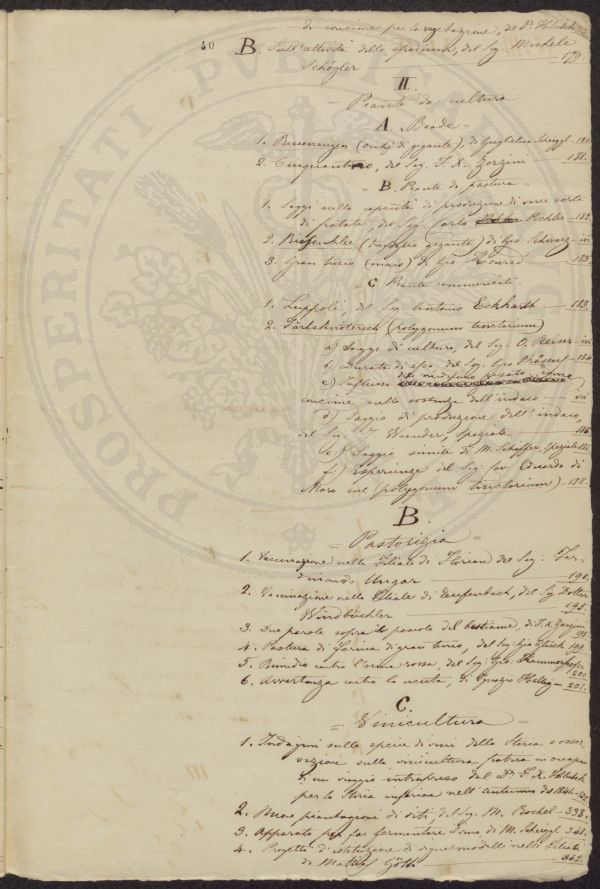 di concime per la vegetazione, del Dr. Hlubek
40
B. Sull'attività dello spodium, del Sig. Michele
Schögler 179.
II.
= Piante da cultura
A. Biade =
1. (orzo di gigante), di Guglielmo 180
2. Cinquantino, del Sig. F. X. Zorzini 181.
= B. Piante da pastura =
1. Saggi sulla capacità di produzione di varie sorte
di patate, del Sig. Carlo Pichler 182.
2. (trifoglio gigante) di Gio Schwarz ivi
3. Gran turco (mais) di Gio Konrad 183.
= C Piante commerciali
1. Luppoli, del Sig. Antonio Eckhardt 183.
2. Färbeknöterich (polygonum tinctorium)
a) Saggi di cultura, del Sig. O. Reiser ivi
b) Durata di essa, del Sig. Gio 184
c) Influsso del medesimo
concime sulla sostanza dell'indaco ivi
d) Saggio di produzione dell'indaco,
del Sig. Wunder, speziale 186
e) Saggio simile di M. Schaffer, speziale 187.
f) Esperienze del Sig. Cav. Edoardo di
Moro sul (polygonum tinctorium) 188.
B.
= Pastorizia =
1. Vaccinazione nella Filiale di Florian del Sig. Fer-
dinando Ungar 190.
2. Vaccinazione nella Filiale di Teufenbach, del Sig. Dottor
Windbüchler 195.
3. Due parole sopra il pascolo del bestiame, di F. X. Zorzini 198.
4. Pastura di farina di gran turco, del Sig. Gio Glück 199.
5. Rimedio contro l'orina rossa, del Sig. Gio. Kammerhofer
200
6. Avvertenza contro la , di Ignazio Helbig 201.
C.
= Vinicultura =
1. Indagini sulle specie di uva della Stiria e osser-
vazione sulla vinicultura patria in occasione
di un viaggio intrapreso dal Dr. F. X. Hlubek
per la Stiria inferiore nell'autunno del 1841
2. Nuove piantagioni di viti, del Sig. M. Rochel 338.
3. Apparato per far fermentare il vino, di M. 341.
4. Progetto d'istituzione di vigne modelli nelle Filiali
di Mattias Götti 342.
PROSPERITATI PVBLICAE